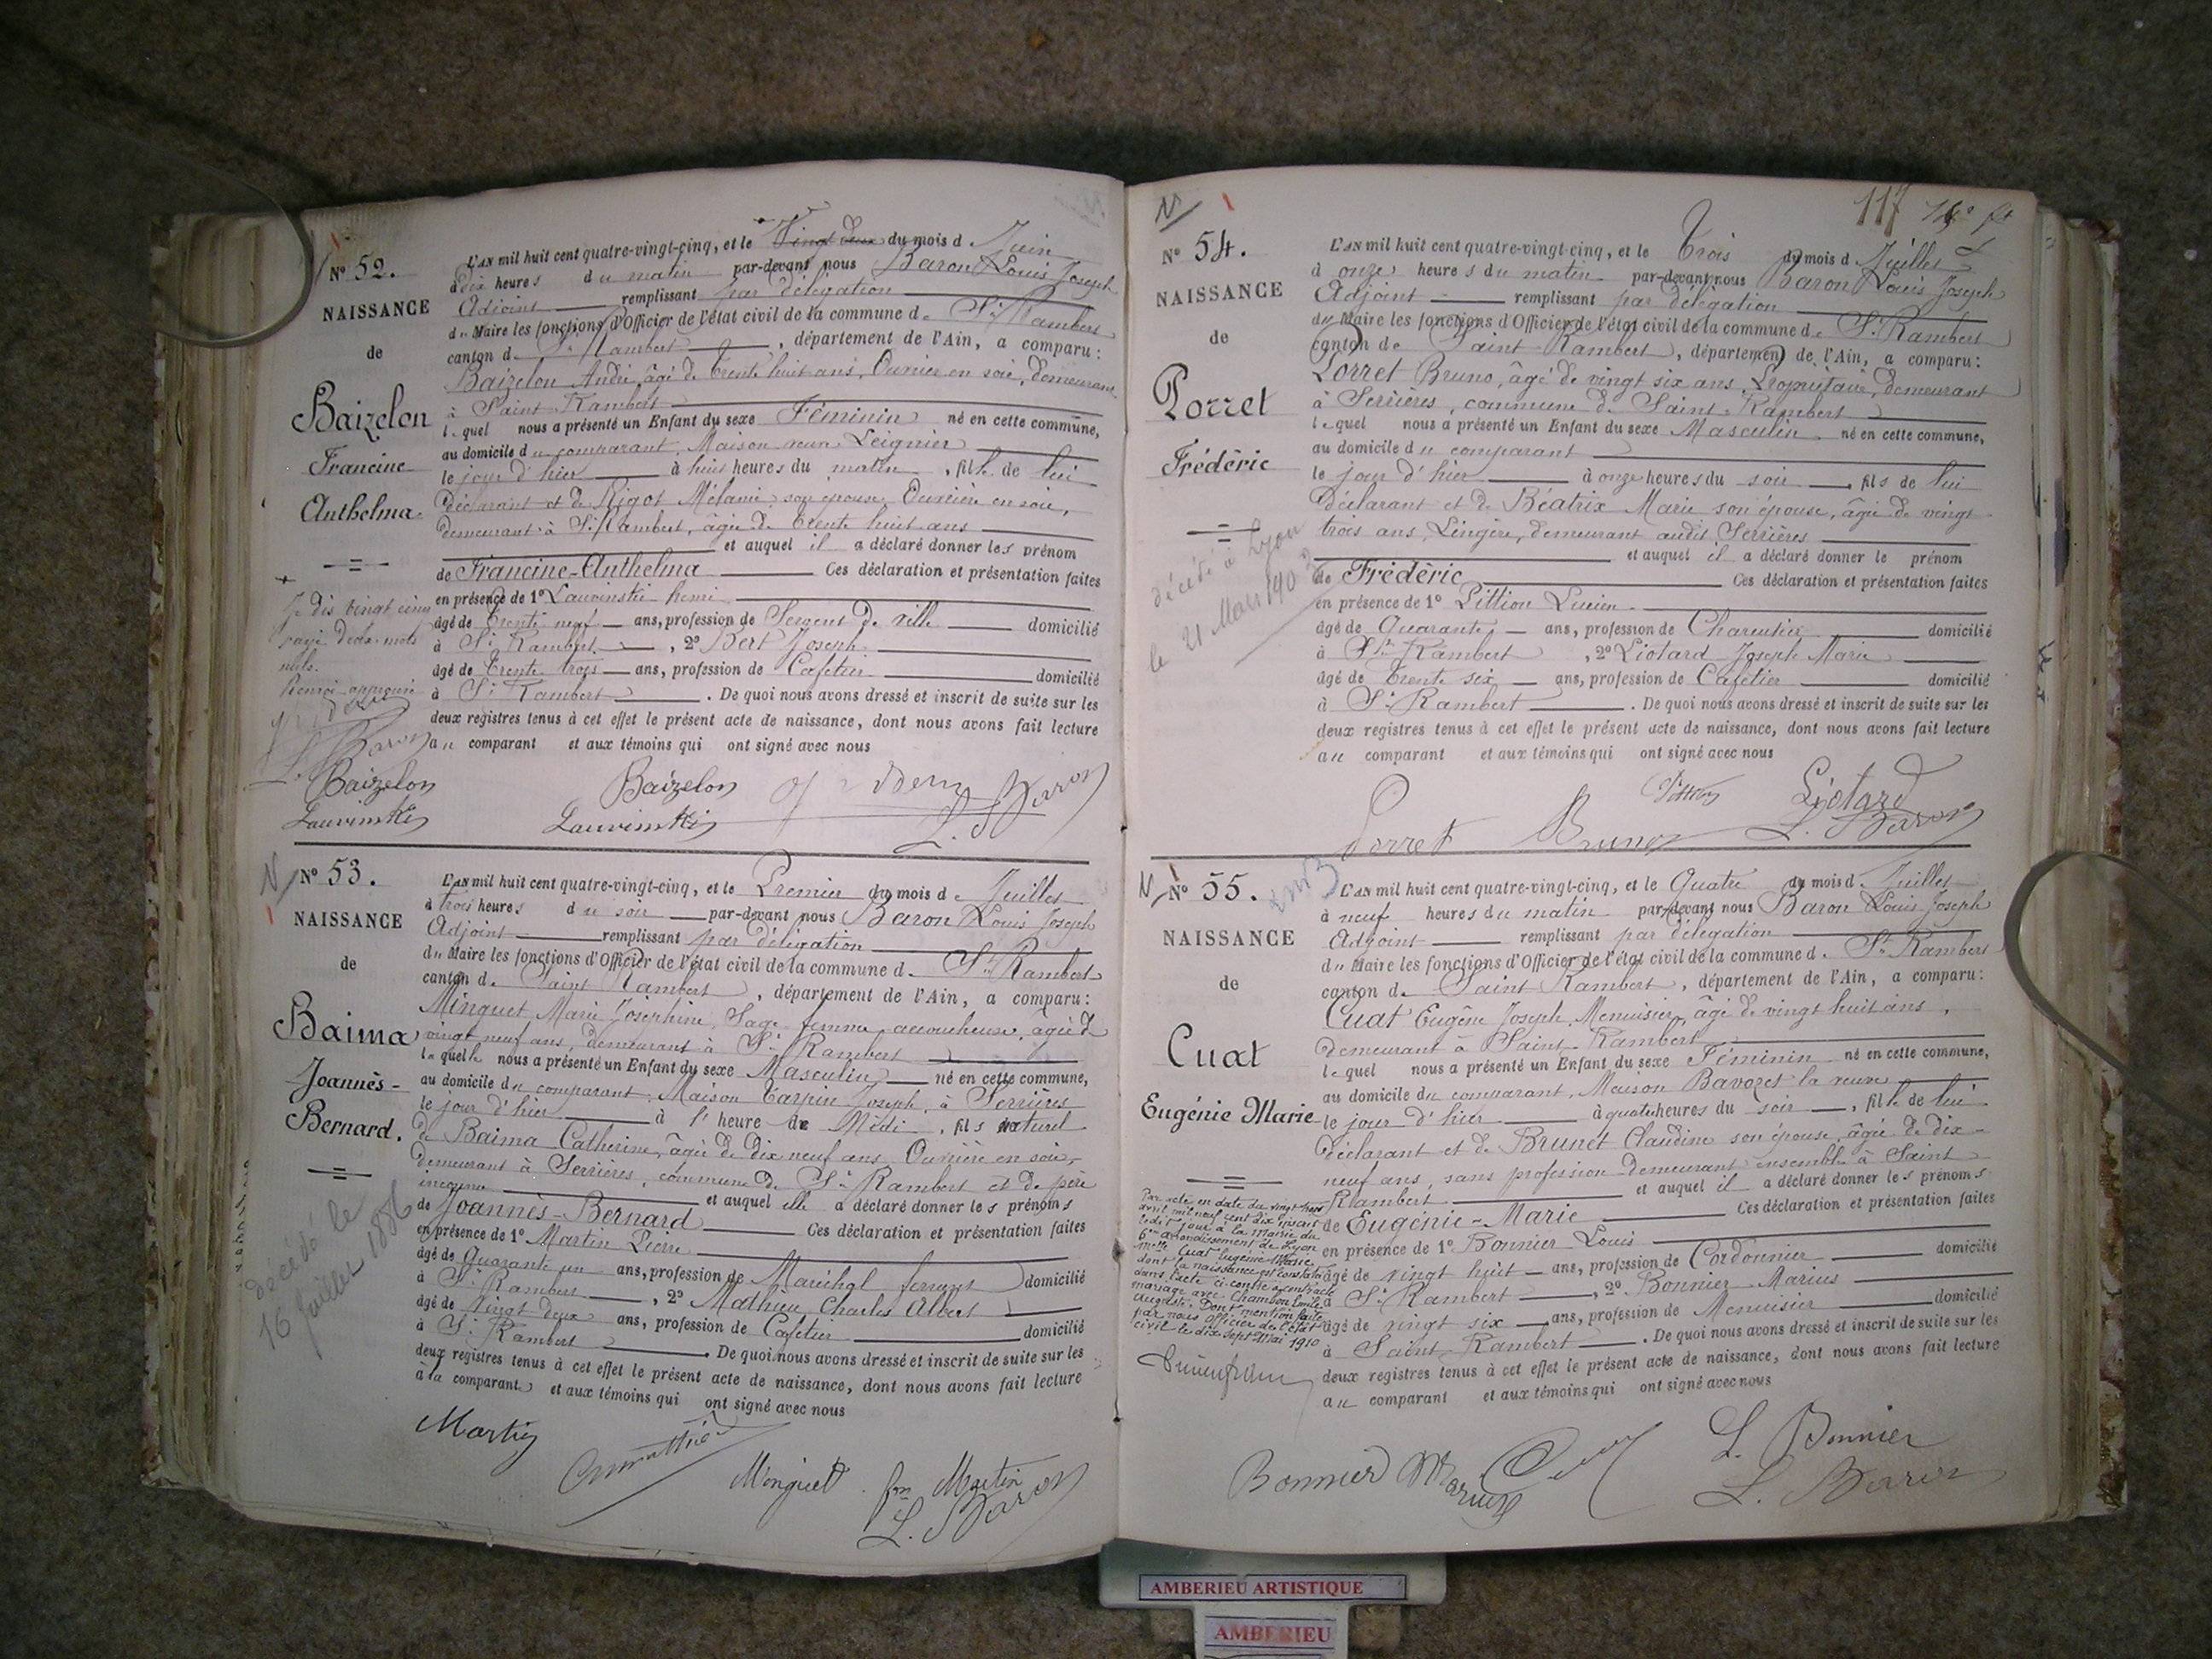 N° 52.
NAISSANCE
de
Baizelon
Francine
Anthelma.
L'AN mil huit cent quatre-vingt-cinq, et le Vingt deux du mois d Juin
à dix heures du matin par-devant nous Baron Louis Joseph
Adjoint remplissant par délégation
du Maire les fonctions d'Officier de l'état civil de la commune de St Rambert
canton de St Rambert, département de l'Ain, a comparu:
Baizelon André, âgé de trente huit ans, Ouvrier en soie, demeurant
à Saint-Rambert
lequel nous a présenté un Enfant du sexe Féminin né en cette commune,
au domicile du comparant, Maison veuve Leignier
le jour d'hier à huit heures du matin, fille de lui
déclarant et de Rigot Mélanie son épouse, Ouvrière en soie,
demeurant à St Rambert, âgée de trente huit ans
et auquel il a déclaré donner les prénom
de Francine-Anthelma Ces déclaration et présentation faites
en présence de 1° Lauvinski henri
âgé de trente neuf ans, profession de Sergent de ville domicilié
à St Rambert, 2° Bert Joseph
âgé de trente trois ans, profession de Cafetier domicilié
à St Rambert. De quoi nous avons dressé et inscrit de suite sur les
deux registres tenus à cet effet le présent acte de naissance, dont nous avons fait lecture
au comparant et aux témoins qui ont signé avec nous
Je dis vingt cinq
rayé deux mots
nuls.
Renvoi approuvé
L. Baron
Baizelon
Lauvinski
Baizelon
Lauvinski
L. Baron
N° 53.
NAISSANCE
de
Baima
Joannès-
Bernard.
L'AN mil huit cent quatre-vingt-cinq, et le Premier du mois de Juillet
à trois heures du soir par-devant nous Baron Louis Joseph
Adjoint remplissant par délégation
du Maire les fonctions d'Officier de l'état civil de la commune de St Rambert
canton de Saint Rambert, département de l'Ain, a comparu:
Minguet Marie Joséphine, Sage femme, accoucheuse, âgée de
vingt neuf ans, demeurant à St Rambert
laquelle nous a présenté un Enfant du sexe Masculin né en cette commune,
au domicile du comparant, Maison Tarpin Joseph, à Serrières
le jour d'hier à l' heure de Midi, fils naturel
de Baima Catherine, âgée de dix neuf ans, Ouvrière en soie,
demeurant à Serrières, commune de St Rambert et de père
inconnu et auquel elle a déclaré donner les prénoms
de Joannès-Bernard Ces déclaration et présentation faites
en présence de 1° Martin Pierre
âgé de Quarante un ans, profession de Maréchal ferrant domicilié
à St Rambert, 2° Mathieu Charles Albert
âgé de vingt deux ans, profession de Cafetier domicilié
à St Rambert. De quoi nous avons dressé et inscrit de suite sur les
deux registres tenus à cet effet le présent acte de naissance, dont nous avons fait lecture
à la comparante et aux témoins qui ont signé avec nous
décédé le
16 Juillet 1886
Martin
Minguet fme Martin
L. Baron
117
N° 54.
NAISSANCE
de
Porret
Frédéric
L'AN mil huit cent quatre-vingt-cinq, et le Trois du mois d Juillet
à onze heures du matin par-devant nous Baron Louis Joseph
Adjoint remplissant par délégation
du Maire les fonctions d'Officier de l'état civil de la commune de St Rambert
canton de Saint Rambert, département de l'Ain, a comparu:
Porret Bruno, âgé de vingt six ans, Propriétaire, demeurant
à Serrières, commune de Saint-Rambert
lequel nous a présenté un Enfant du sexe Masculin né en cette commune,
au domicile du comparant
le jour d'hier à onze heures du soir, fils de lui
déclarant et de Béatrix Marie son épouse, âgée de vingt
trois ans, Lingère, demeurant audit Serrières
et auquel il a déclaré donner le prénom
de Frédéric Ces déclaration et présentation faites
en présence de 1° Pittion Lucien
âgé de Quarante ans, profession de Charcutier domicilié
à St Rambert, 2° Liotard Joseph Marie
âgé de trente six ans, profession de Cafetier domicilié
à St Rambert. De quoi nous avons dressé et inscrit de suite sur les
deux registres tenus à cet effet le présent acte de naissance, dont nous avons fait lecture
au comparant et aux témoins qui ont signé avec nous
décédé à Lyon
le 21 Mars 190
Pittion Liotard
Porret Bruno L. Baron
N° 55.
NAISSANCE
de
Cuat
Eugénie Marie
L'AN mil huit cent quatre-vingt-cinq, et le Quatre du mois d Juillet
à neuf heures du matin par-devant nous Baron Louis Joseph
Adjoint remplissant par délégation
du Maire les fonctions d'Officier de l'état civil de la commune de St Rambert
canton de Saint Rambert, département de l'Ain, a comparu:
Cuat Eugène Joseph, Menuisier, âgé de vingt huit ans,
demeurant à Saint Rambert
lequel nous a présenté un Enfant du sexe Féminin né en cette commune,
au domicile du comparant, Maison Bavozet la veuve
le jour d'hier à quatre heures du soir, fille de lui
déclarant et de Brunet Claudine son épouse, âgée de dix-
neuf ans, sans profession demeurant ensemble à Saint
Rambert et auquel il a déclaré donner les prénoms
de Eugénie-Marie Ces déclaration et présentation faites
en présence de 1° Bonnier Louis
âgé de vingt huit ans, profession de Cordonnier domicilié
à St Rambert, 2° Bonnier Marius
âgé de vingt six ans, profession de Menuisier domicilié
à Saint Rambert. De quoi nous avons dressé et inscrit de suite sur les
deux registres tenus à cet effet le présent acte de naissance, dont nous avons fait lecture
au comparant et aux témoins qui ont signé avec nous
Par acte en date du vingt-trois
avril mil neuf cent dix inscrit
le dit jour à la Mairie du
6me arrondissement de Lyon
Melle Cuat Eugénie Marie
dont la naissance est constatée
dans l'acte ci-contre a contracté
mariage avec Chambon Emile
Auguste. Dont mention faite
par nous officier de l'état
civil le dix sept Mai 1910
Bonnier Marius L. Bonnier
L. Baron
AMBERIEU ARTISTIQUE
AMBERIEU